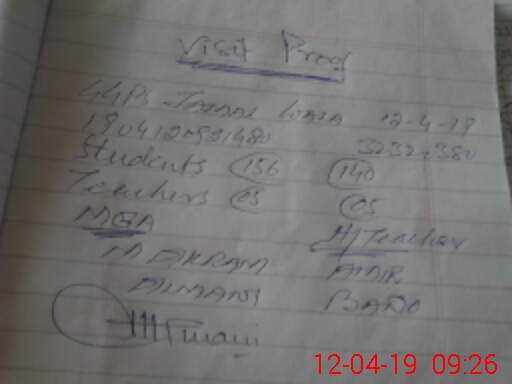 Visit Proof
GGPS JAMAL WALA 12-4-19
1904120921480 32320380
Students 156 140
Teachers 05 05
MEA H/Teacher
M AKRAM AMIR
ALMANI BANO
12-04-19 09:26